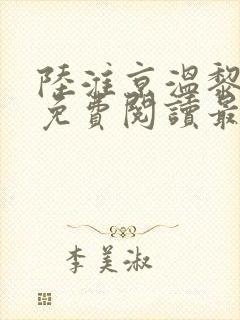 陸淮京溫黎
免費閱讀最
李美淑